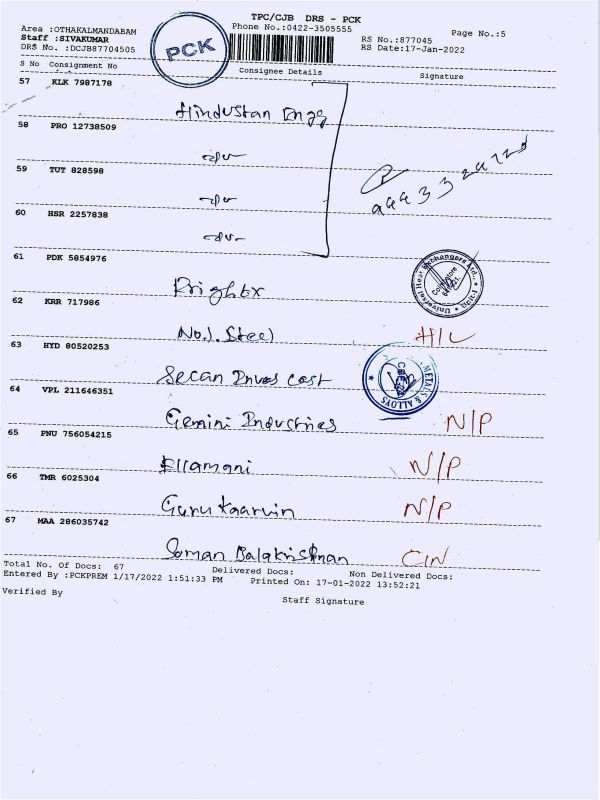 TPC/CJB DRS - PCK
Area :OTHAKALMANDABAM Phone No.:0422-3505555 Page No.:5
Staff :SIVAKUMAR RS No.:877045
DRS No. :DCJB87704505 RS Date:17-Jan-2022
PCK
S No Consignment No Consignee Details Signature
57 KLK 7987178
Hindustan Engg
58 PRO 12738509
59 TUT 828598
60 HSR 2257838
61 PDK 5854976
Universal Heat Exchangers Ltd., Coimbatore
62 KRR 717986
No.1. Steel H/L
63 HYD 80520253
Secan Inves cast METALS & ALLOYS
64 VPL 211646351
Gemini Industries N/P
65 PNU 756054215
Ellamani N/P
66 TMR 6025304
Guru Kaarvin N/P
67 MAA 286035742
Soman Balakrishnan C/N
Total No. Of Docs: 67 Delivered Docs: Non Delivered Docs:
Entered By :PCKPREM 1/17/2022 1:51:33 PM Printed On: 17-01-2022 13:52:21
Verified By Staff Signature